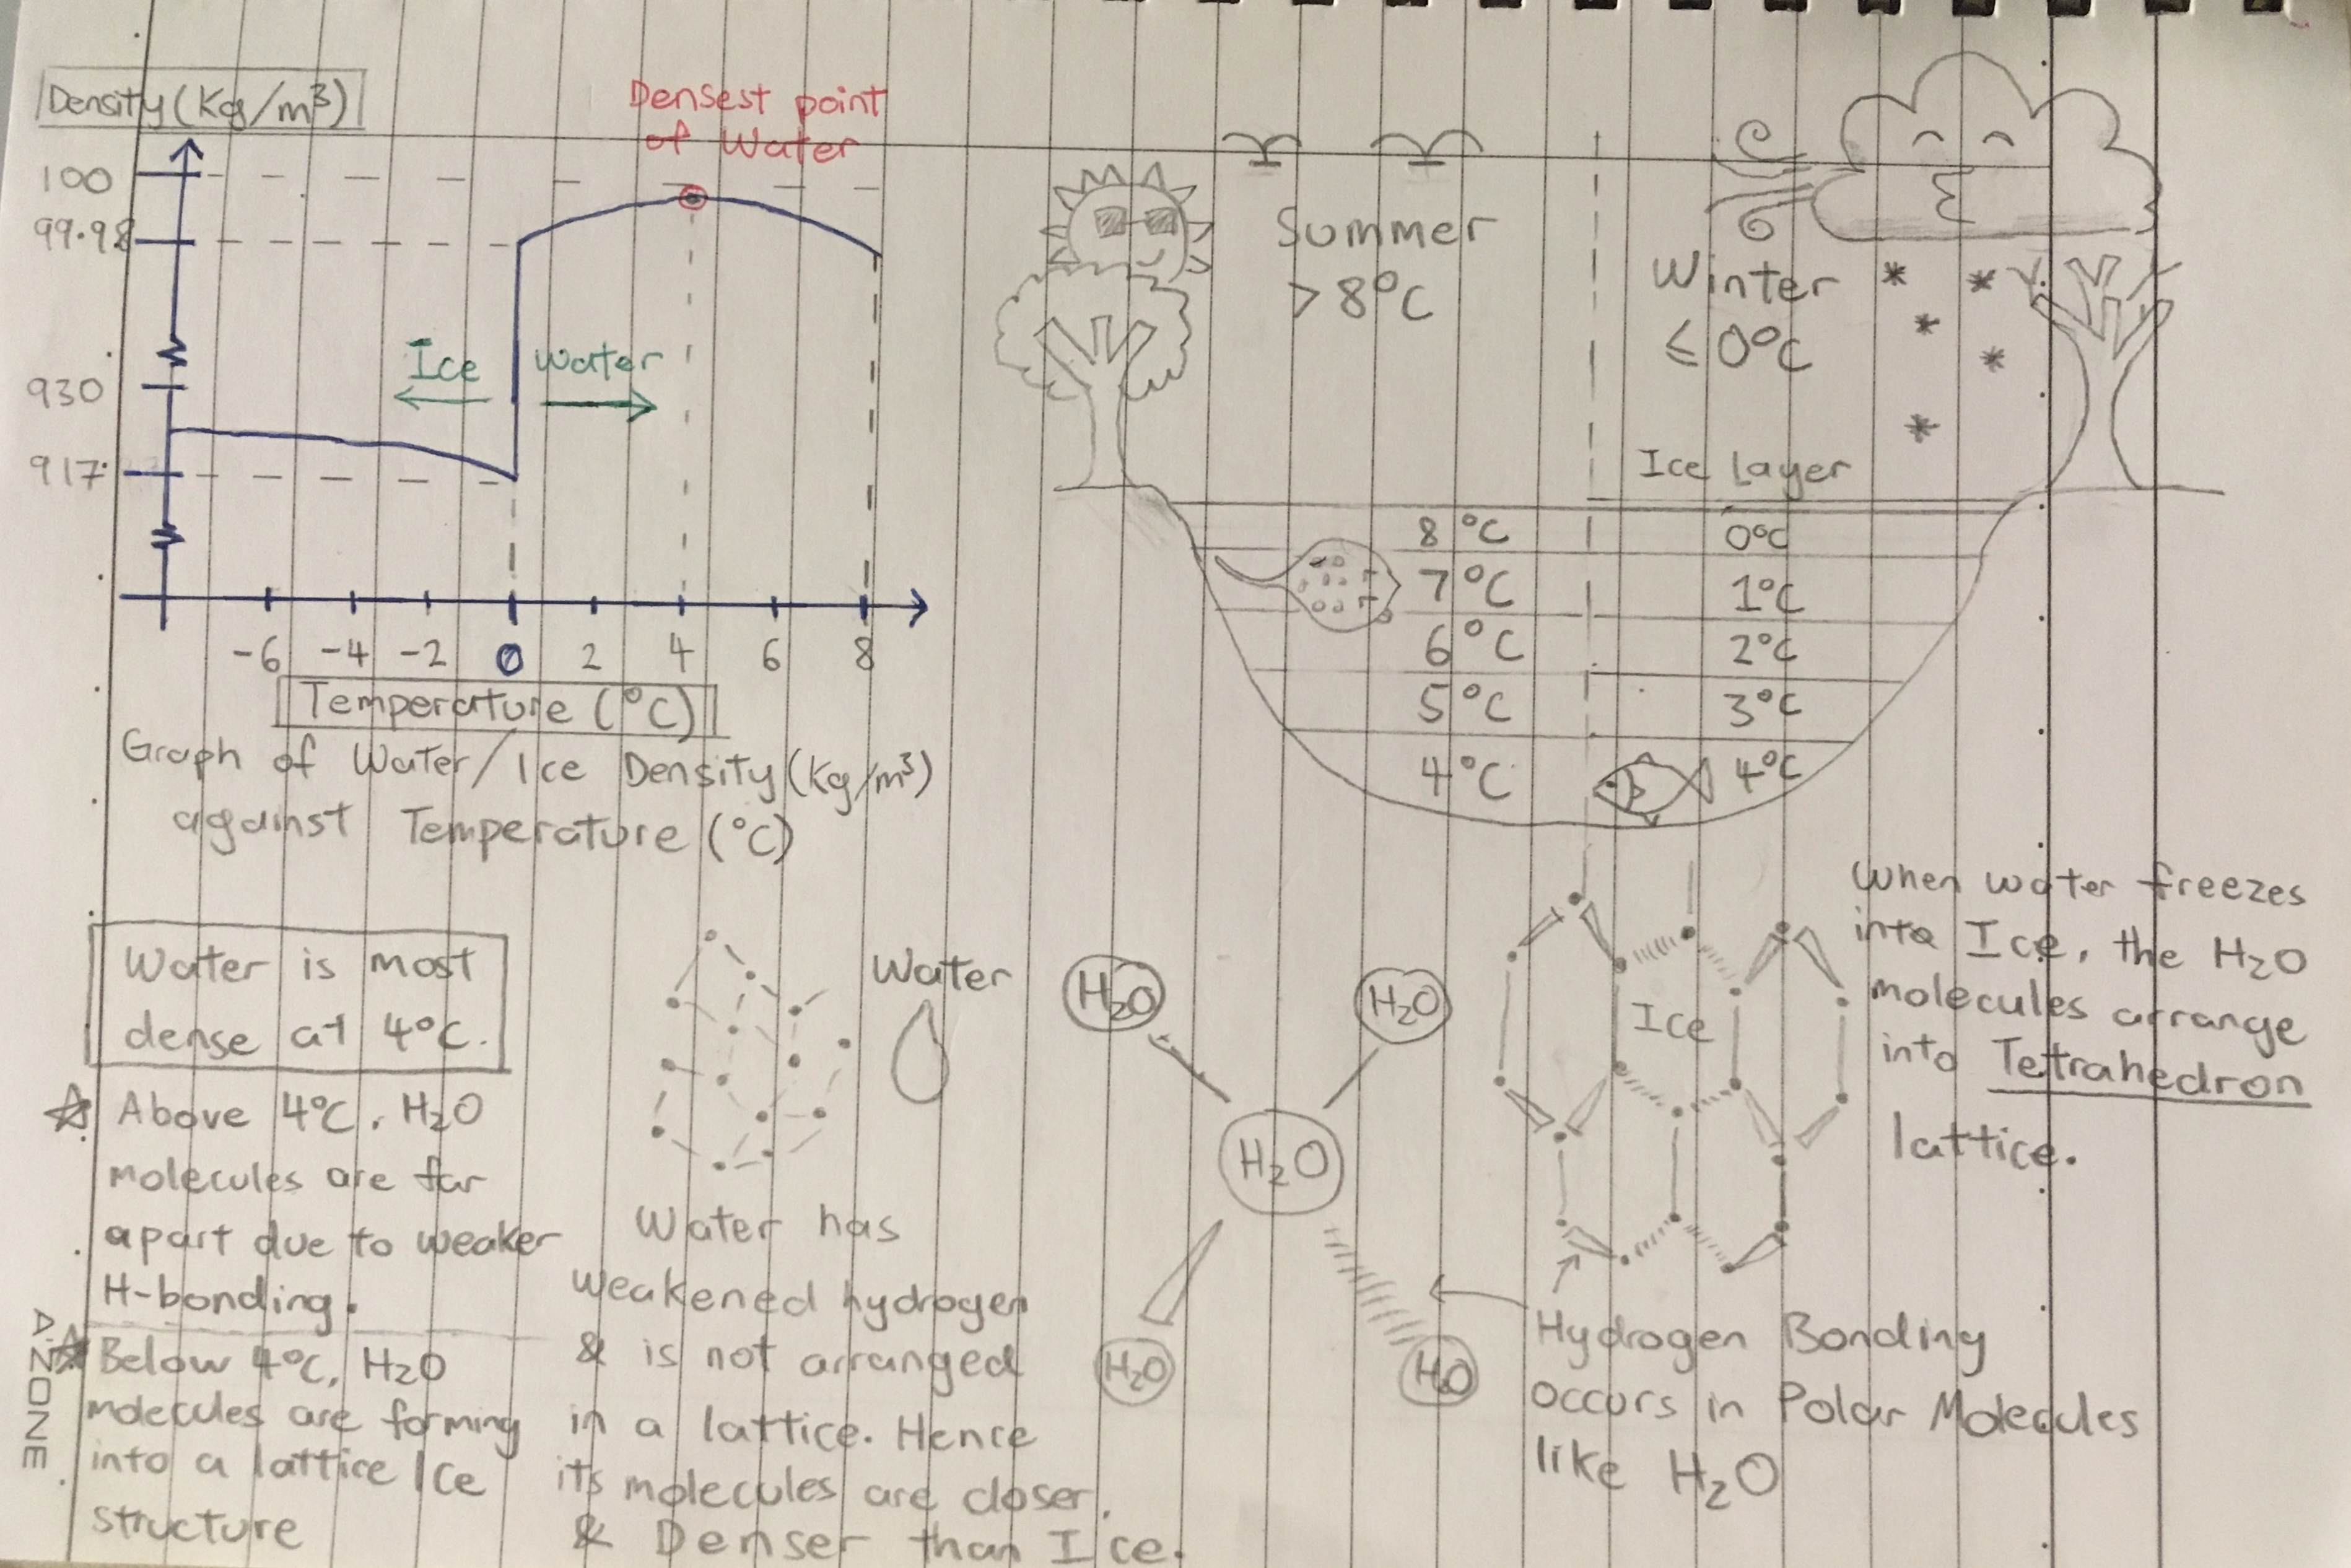 Density (Kg/m³)
100
99.98
930
917
Densest point
of Water
Ice
water
-6 -4 -2 0 2 4 6 8
Temperature (°C)
Graph of Water/Ice Density (Kg/m³)
against Temperature (°C)
Summer
> 8°C
Winter
≤ 0°C
Ice Layer
8°C
7°C
6°C
5°C
4°C
0°C
1°C
2°C
3°C
4°C
Water is most
dense at 4°C.
☆ Above 4°C, H₂O
molecules are far
apart due to weaker
H-bonding.
☆ Below 4°C, H₂O
molecules are forming
into a lattice Ice
structure
AZONE
Water
Water has
weakened hydrogen
& is not arranged
in a lattice. Hence
its molecules are closer.
& Denser than Ice.
H₂O
H₂O
H₂O
H₂O
H₂O
Ice
When water freezes
into Ice, the H₂O
molecules arrange
into Tetrahedron
lattice.
Hydrogen Bonding
occurs in Polar Molecules
like H₂O